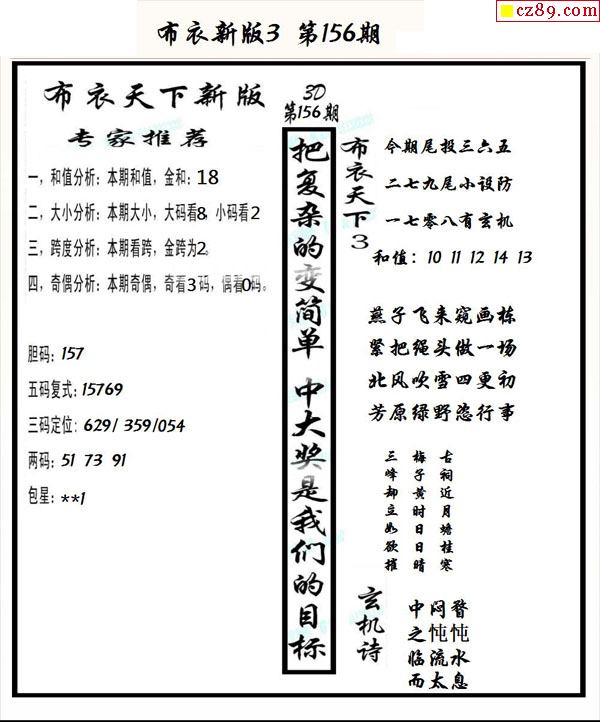 cz89.com
布衣新版3 第156期
布衣天下新版
专家推荐
一，和值分析：本期和值，金和：18
二，大小分析：本期大小，大码看8，小码看2
三，跨度分析：本期看跨，金跨为2。
四，奇偶分析：本期奇偶，奇看3码，偶看0码。
胆码：157
五码复式：15769
三码定位：629/ 359/054
两码：51 73 91
包星：**1
3D
第156期
把复杂的变简单 中大奖是我们的目标
布衣天下3
今期尾投三六五
二七九尾小设防
一七零八有玄机
和值：10 11 12 14 13
燕子飞来窥画栋
紧把绳头做一场
北风吹雪四更初
芳原绿野恣行事
古祠近月蟾桂寒
梅子黄时日日晴
三峰却立如欲摧
玄机诗
中闷瞀
之忳忳
临流水
而太息